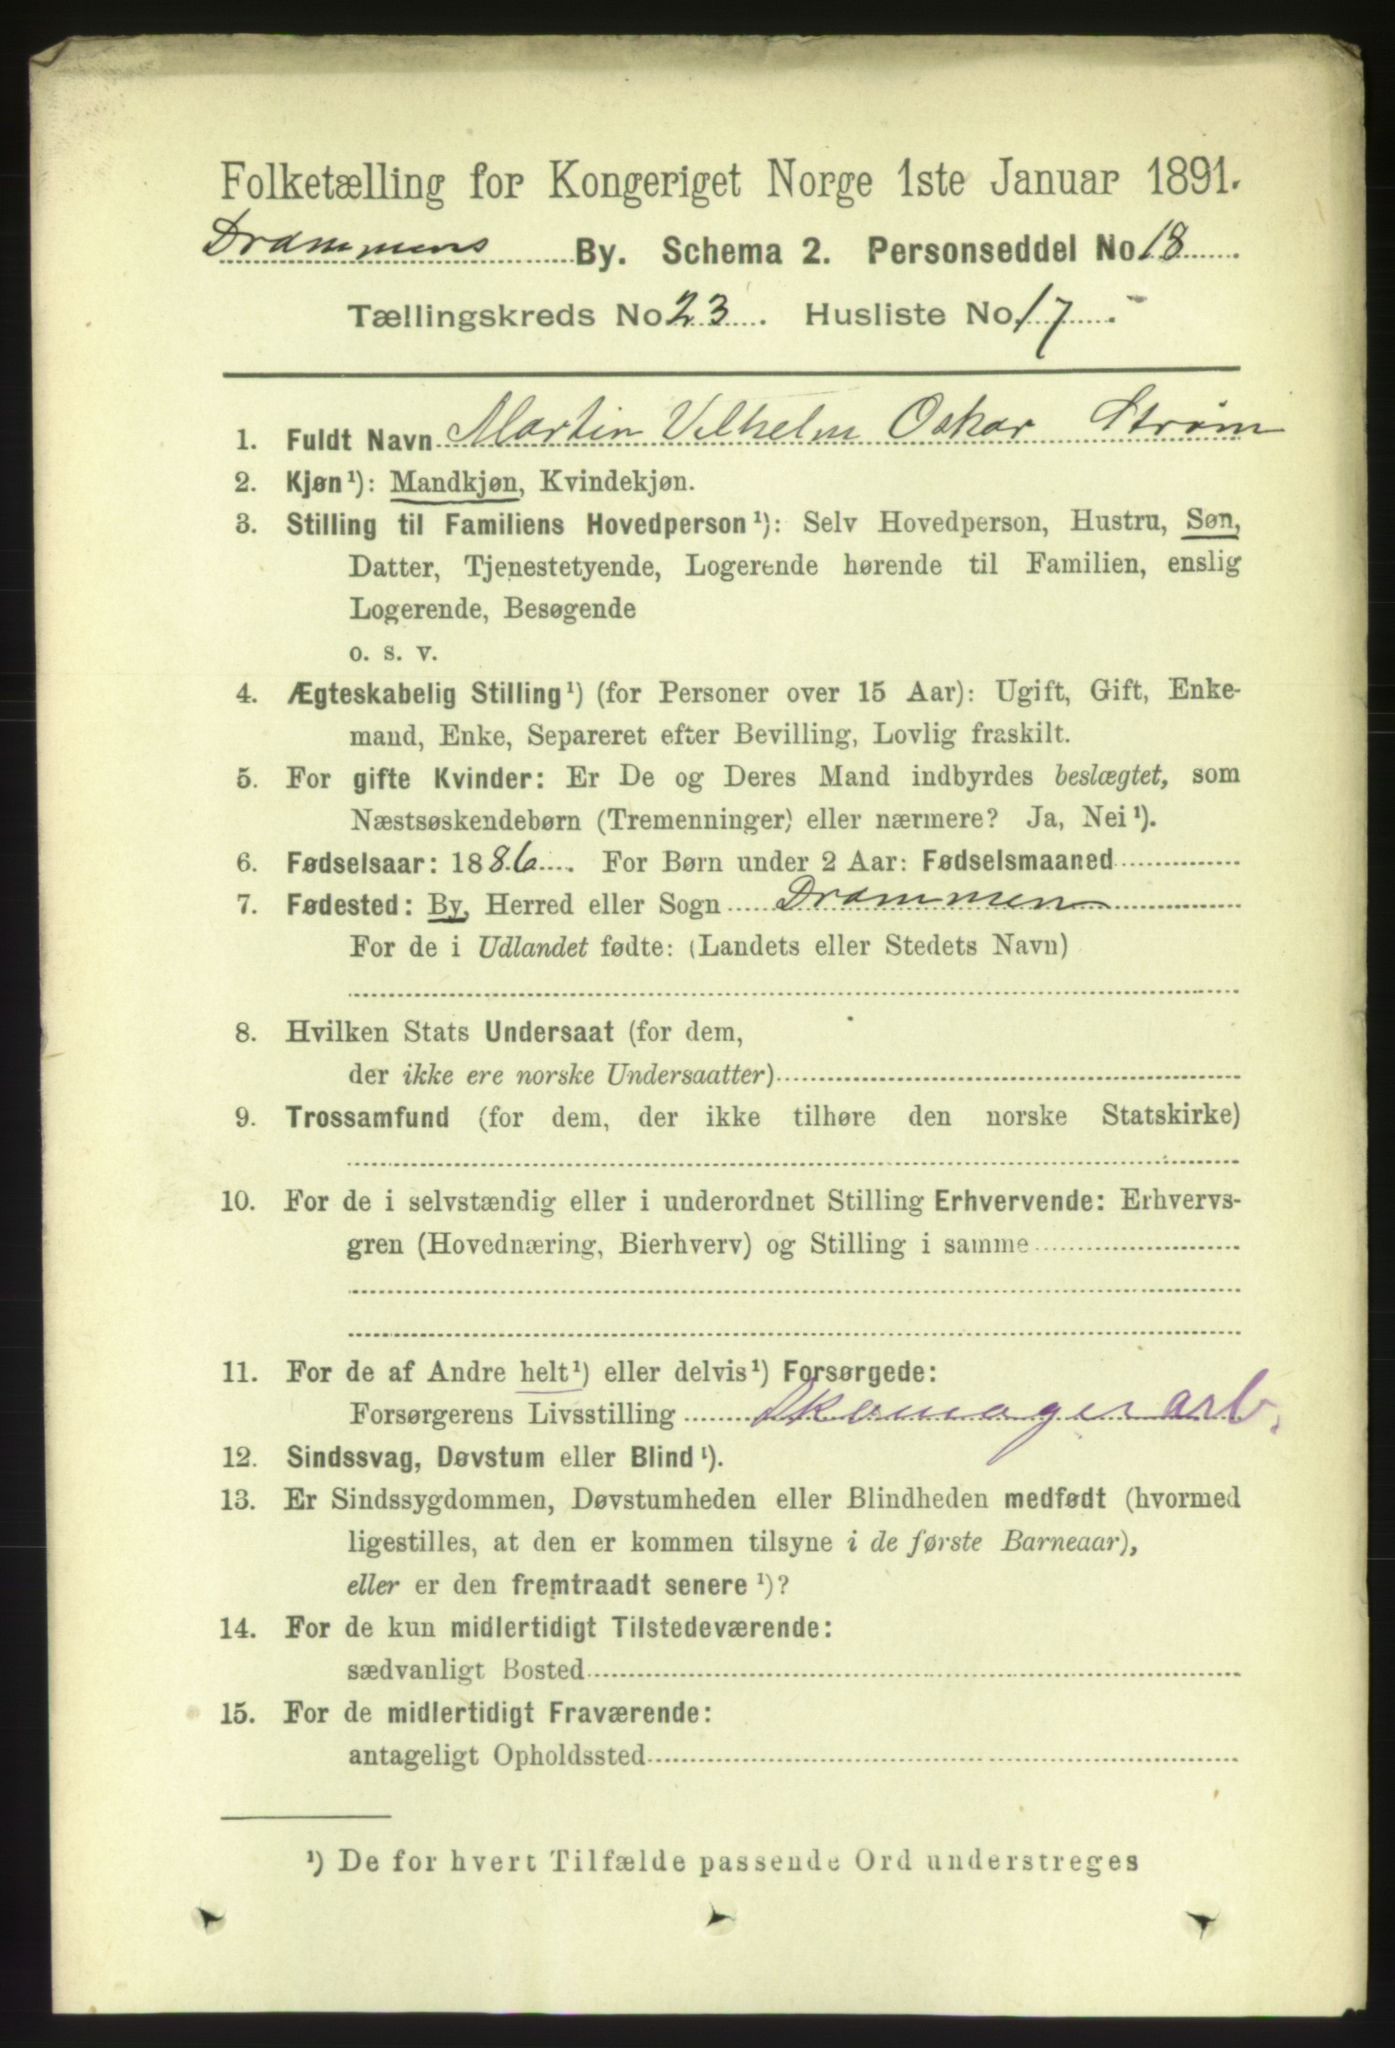 Folketælling for Kongeriget Norge 1ste Januar 1891.
Drammens By. Schema 2. Personseddel No 18
Tællingskreds No 23. Husliste No 17.
1. Fuldt Navn Martin Vilhelm Oskar Strøm
2. Kjøn¹): Mandkjøn, Kvindekjøn.
3. Stilling til Familiens Hovedperson¹): Selv Hovedperson, Hustru, Søn,
Datter, Tjenestetyende, Logerende hørende til Familien, enslig
Logerende, Besøgende
o. s. v.
4. Ægteskabelig Stilling¹) (for Personer over 15 Aar): Ugift, Gift, Enke-
mand, Enke, Separeret efter Bevilling, Lovlig fraskilt.
5. For gifte Kvinder: Er De og Deres Mand indbyrdes beslægtet, som
Næstsøskendebørn (Tremenninger) eller nærmere? Ja, Nei¹).
6. Fødselsaar: 1886. For Børn under 2 Aar: Fødselsmaaned
7. Fødested: By, Herred eller Sogn Drammen
For de i Udlandet fødte: (Landets eller Stedets Navn)
8. Hvilken Stats Undersaat (for dem,
der ikke ere norske Undersaatter)
9. Trossamfund (for dem, der ikke tilhøre den norske Statskirke)
10. For de i selvstændig eller i underordnet Stilling Erhvervende: Erhvervs-
gren (Hovednæring, Bierhverv) og Stilling i samme
11. For de af Andre helt¹) eller delvis¹) Forsørgede:
Forsørgerens Livsstilling Skomagerarb.
12. Sindssvag, Døvstum eller Blind¹).
13. Er Sindssygdommen, Døvstumheden eller Blindheden medfødt (hvormed
ligestilles, at den er kommen tilsyne i de første Barneaar),
eller er den fremtraadt senere¹)?
14. For de kun midlertidigt Tilstedeværende:
sædvanligt Bosted
15. For de midlertidigt Fraværende:
antageligt Opholdssted
¹) De for hvert Tilfælde passende Ord understreges